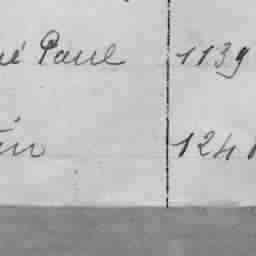 né Paul 1139
in 124